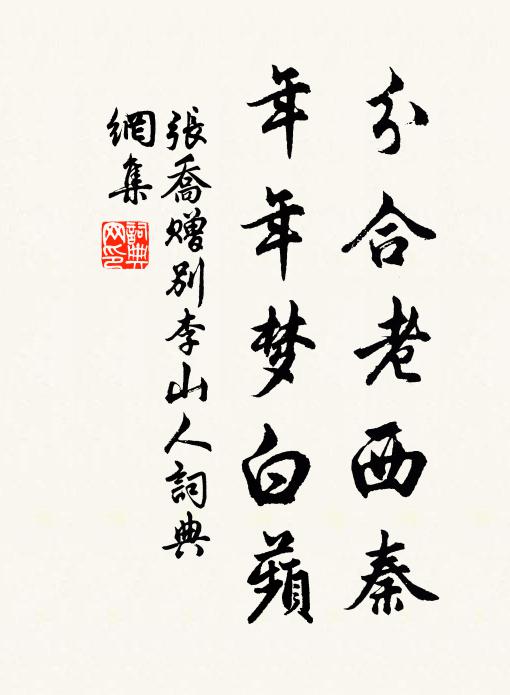 分合老西秦
年年梦白蘋
張喬贈别李山人詞典
網集
詞典
网印